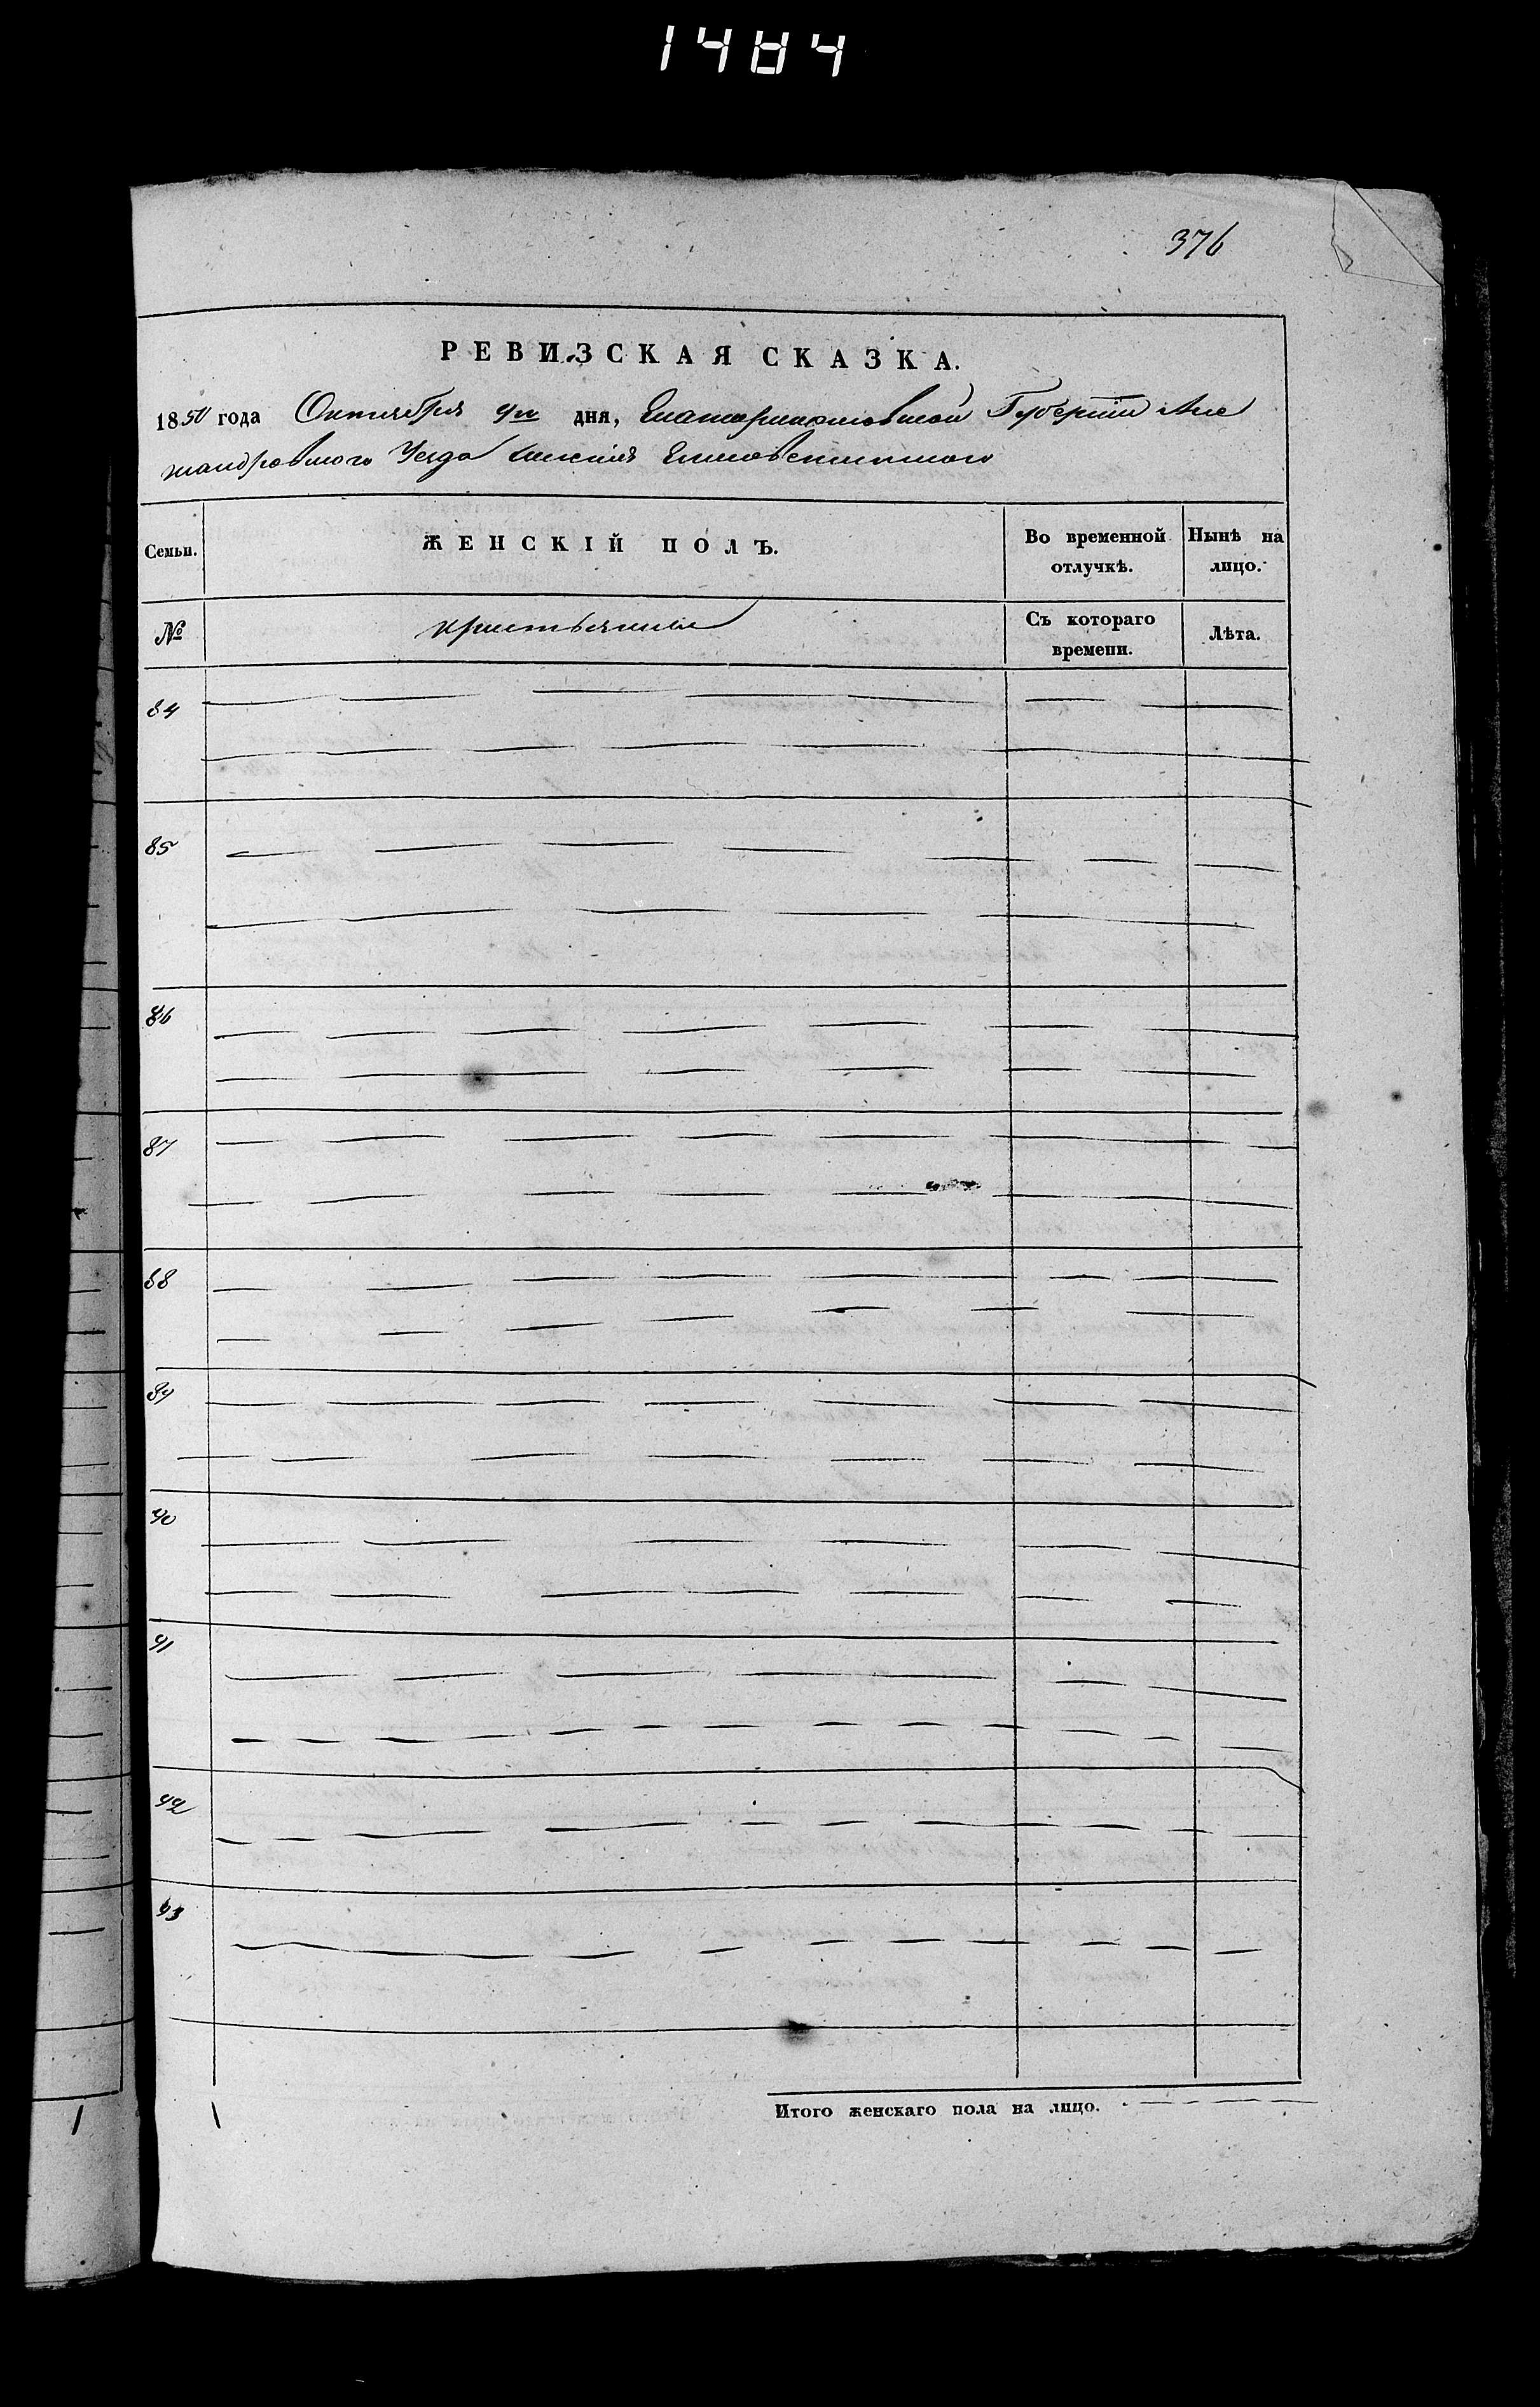 1484
376
РЕВИЗСКАЯ СКАЗКА.
1850 года Октября 9го дня, Екатеринославской Губерніи Алек
сандровского Уезда
ЖЕНСКІЙ ПОЛЪ.
Семьи.
Во временной отлучкѣ.
Нынѣ на лицо.
№
крестьянъ
Съ котораго времени.
Лѣта.
84
85
86
87
88
89
90
91
92
93
Итого женскаго пола на лицо.